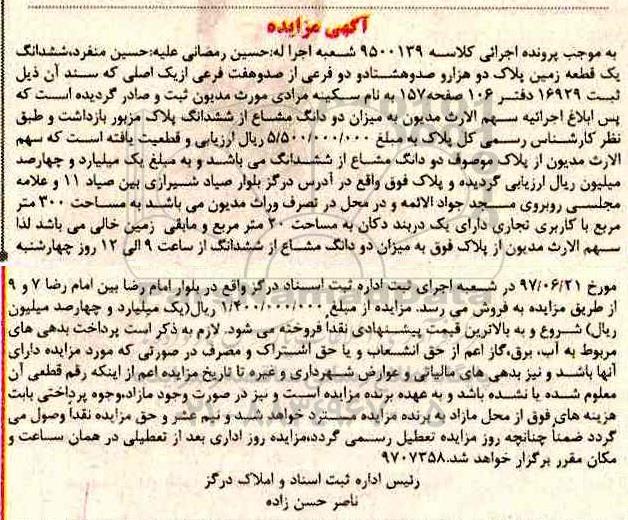 آگهی مزایده
به موجب پرونده اجرائی کلاسه ۹۵۰۰۱۳۹ شعبه اجرا له:حسین رمضانی علیه:حسین منفرد،ششدانگ
یک قطعه زمین پلاک دو هزارو صدوهشتادو دو فرعی از صدوهفت فرعی ازیک اصلی که سند آن ذیل
ثبت ۱۶۹۲۹ دفتر ۱۰۶ صفحه۱۵۷ به نام سکینه مرادی مورث مدیون ثبت و صادر گردیده است که
پس ابلاغ اجرائیه سهم الارث مدیون به میزان دو دانگ مشاع از ششدانگ پلاک مزبور بازداشت و طبق
نظر کارشناس رسمی کل پلاک به مبلغ ۵/۵۰۰/۰۰۰/۰۰۰ ریال ارزیابی و قطعیت یافته است که سهم
الارث مدیون از پلاک موصوف دو دانگ مشاع از ششدانگ می باشد و به مبلغ یک میلیارد و چهارصد
میلیون ریال ارزیابی گردیده و پلاک فوق واقع در آدرس درگز بلوار صیاد شیرازی بین صیاد ۱۱ و علامه
مجلسی روبروی مسجد جواد الائمه و در محل در تصرف وراث مدیون می باشد به مساحت ۳۰۰ متر
مربع با کاربری تجاری دارای یک دربند دکان به مساحت ۲۰ متر مربع و مابقی زمین خالی می باشد لذا
سهم الارث مدیون از پلاک فوق به میزان دو دانگ مشاع از ششدانگ از ساعت ۹ الی ۱۲ روز چهارشنبه
مورخ ۹۷/۰۶/۲۱ در شعبه اجرای ثبت اداره ثبت اسناد درگز واقع در بلوار امام رضا بین امام رضا ۷ و ۹
از طریق مزایده به فروش می رسد. مزایده از مبلغ ۱/۴۰۰/۰۰۰/۰۰۰ ریال(یک میلیارد و چهارصد میلیون
ریال) شروع و به بالاترین قیمت پیشنهادی نقدا فروخته می شود. لازم به ذکر است پرداخت بدهی های
مربوط به آب، برق،گاز اعم از حق انشعاب و یا حق اشتراک و مصرف در صورتی که مورد مزایده دارای
آنها باشد و نیز بدهی های مالیاتی و عوارض شهرداری و غیره تا تاریخ مزایده اعم از اینکه رقم قطعی آن
معلوم شده یا نشده باشد و به عهده برنده مزایده است و نیز در صورت وجود مازاد،وجوه پرداختی بابت
هزینه های فوق از محل مازاد به برنده مزایده مسترد خواهد شد و نیم عشر و حق مزایده نقدا وصول می
گردد ضمناً چنانچه روز مزایده تعطیل رسمی گردد،مزایده روز اداری بعد از تعطیلی در همان ساعت و
مکان مقرر برگزار خواهد شد.۹۷۰۷۳۵۸
رئیس اداره ثبت اسناد و املاک درگز
ناصر حسن زاده